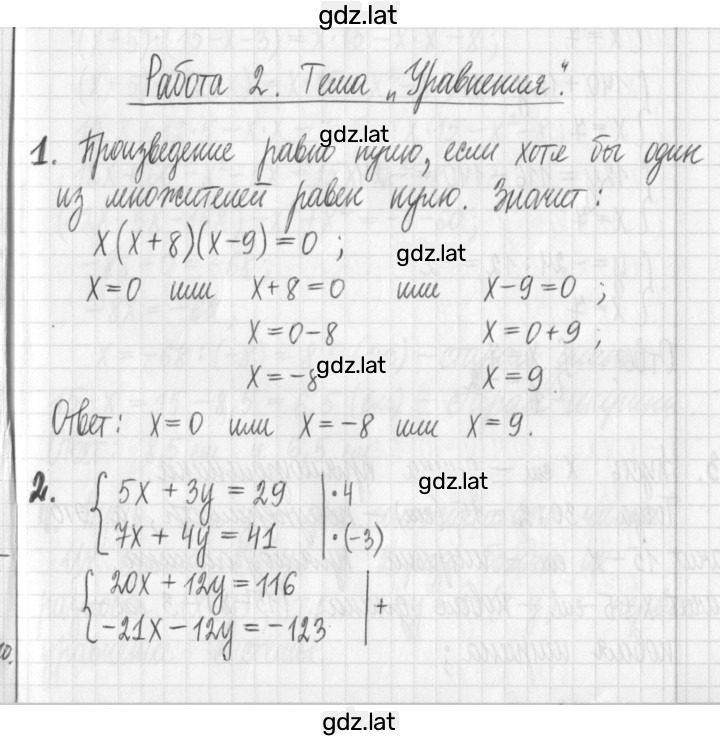 gdz.lat
Работа 2. Тема „Уравнения“.
gdz.lat
1. Произведение равно нулю, если хотя бы один
из множителей равен нулю. Значит:
x(x+8)(x-9)=0 ;
gdz.lat
x=0 или x+8=0 или x-9=0 ;
x=0-8 x=0+9 ;
gdz.lat
x=-8 x=9
Ответ: x=0 или x=-8 или x=9.
gdz.lat
2. { 5x + 3y = 29 | · 4
7x + 4y = 41 | · (-3)
{ 20x + 12y = 116
-21x - 12y = -123 | +
gdz.lat